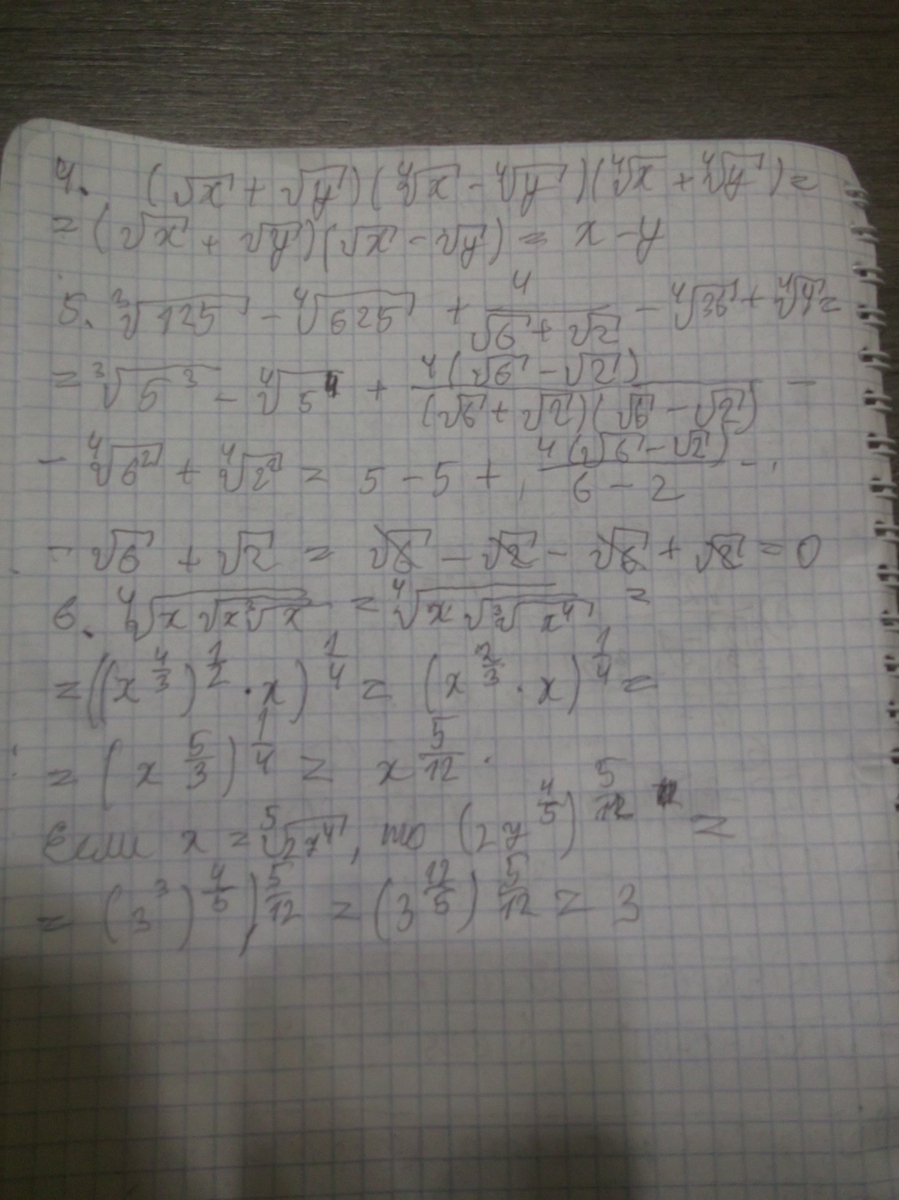 4. (√x + √y)(∜x - ∜y)(∜x + ∜y) =
= (√x + √y)(√x - √y) = x - y
5. ∛125 - ∜625 + 4/(√6 + √2) - ∜36 + ∜4 =
= ∛5³ - ∜5⁴ + 4(√6 - √2)/((√6 + √2)(√6 - √2)) -
- ∜6² + ∜2² = 5 - 5 + 4(√6 - √2)/(6 - 2) -
- √6 + √2 = √6 - √2 - √6 + √2 = 0
6. ∜(x√(x∛x)) = ∜(x√(∛x⁴)) =
= ((x^(4/3))^(1/2) · x)^(1/4) = (x^(2/3) · x)^(1/4) =
= (x^(5/3))^(1/4) = x^(5/12).
Если x = ⁵√27⁴, то (27^(4/5))^(5/12) =
= (3³)^(4/5))^(5/12) = (3^(12/5))^(5/12) = 3